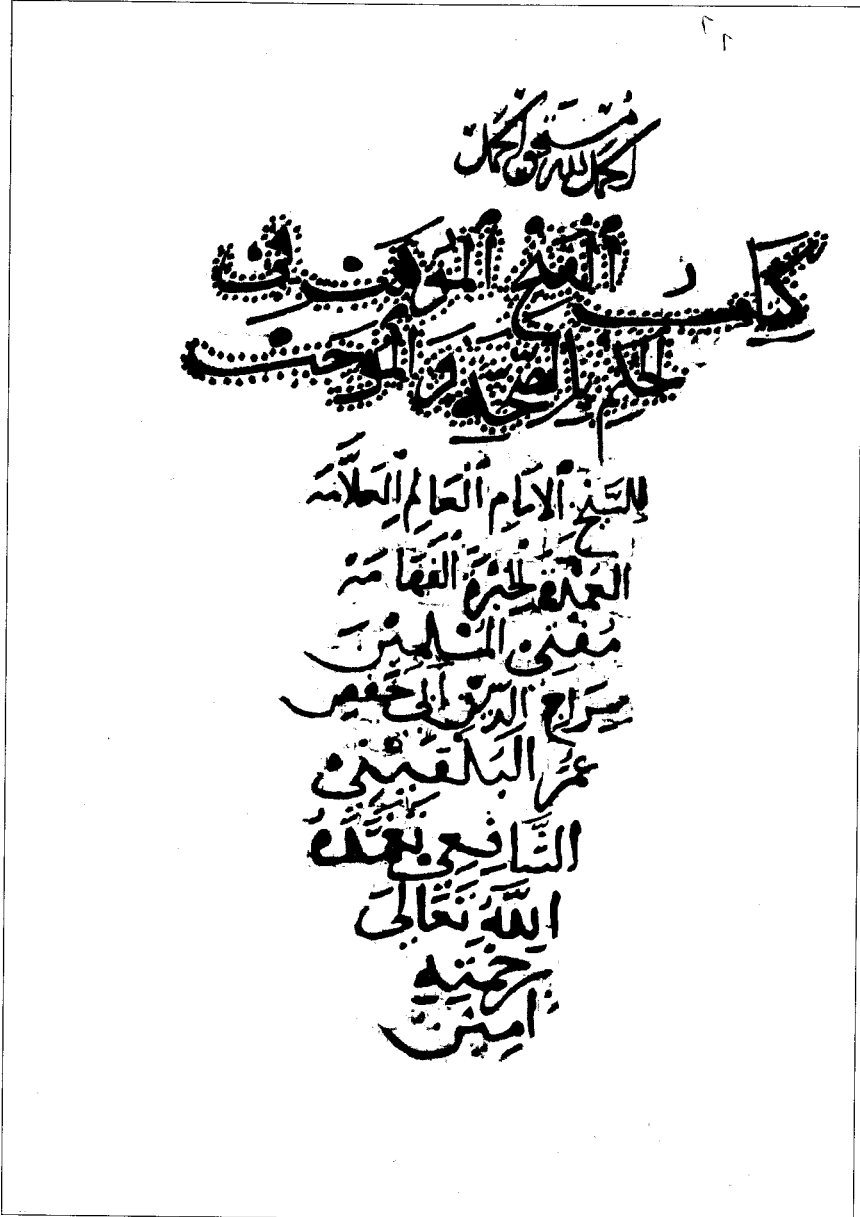 الحمد لله مستحق الحمد
كتاب الفتح الموهب في
الحكم بالصحة والموجب
للشيخ الإمام العالم العلامه
العمدة الحبرة الفهامه
مفتي المسلمين
سراج الدين أبي حفص
عمر البلقيني
الشافعي تغمده
الله تعالى
برحمته
امين